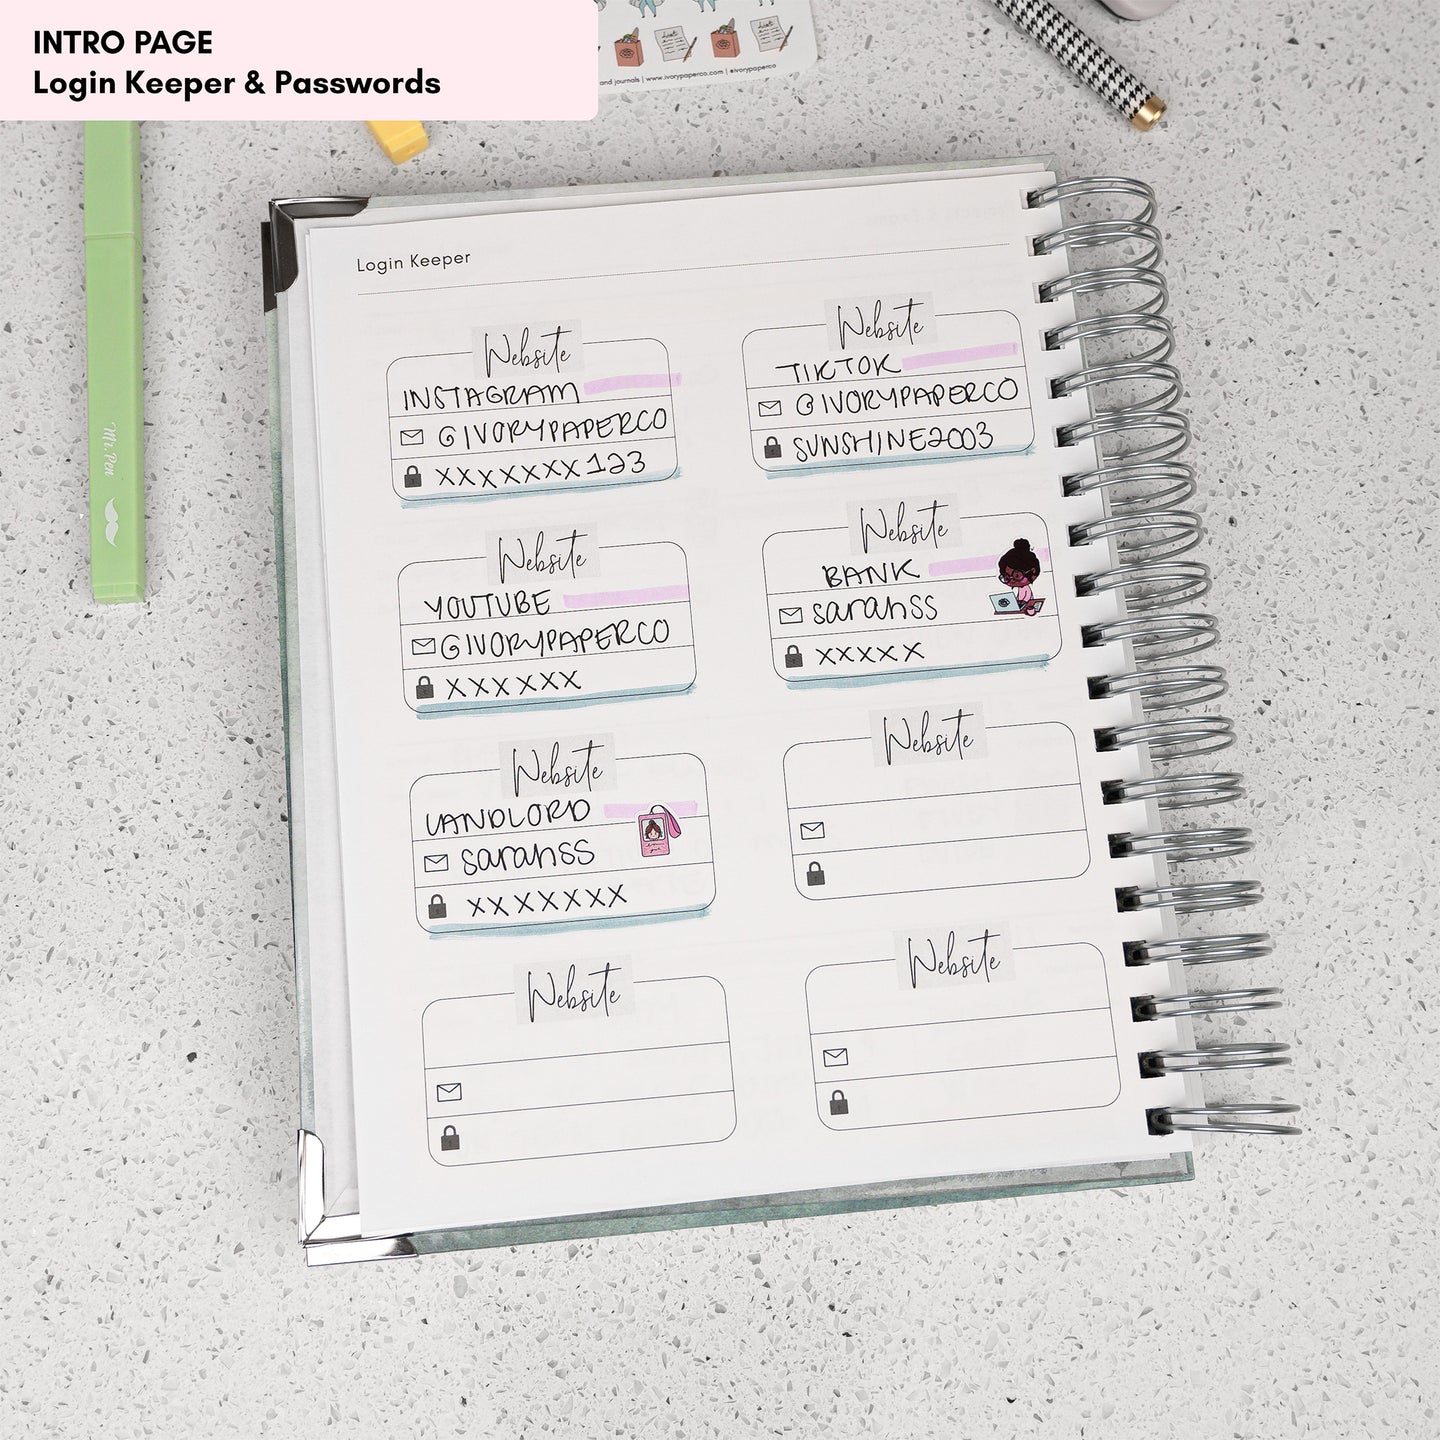 INTRO PAGE
Login Keeper & Passwords
and journals | www.ivorypaperco.com | @ivorypaperco
Mr. Pen
Login Keeper
Website
INSTAGRAM
@IVORYPAPERCO
XXXXXXX123
Website
TIKTOK
@IVORYPAPERCO
SUNSHINE2003
Website
YOUTUBE
@IVORYPAPERCO
XXXXXX
Website
BANK
sarahss
XXXXX
Website
LANDLORD
sarahss
XXXXXXX
Website
Website
Website